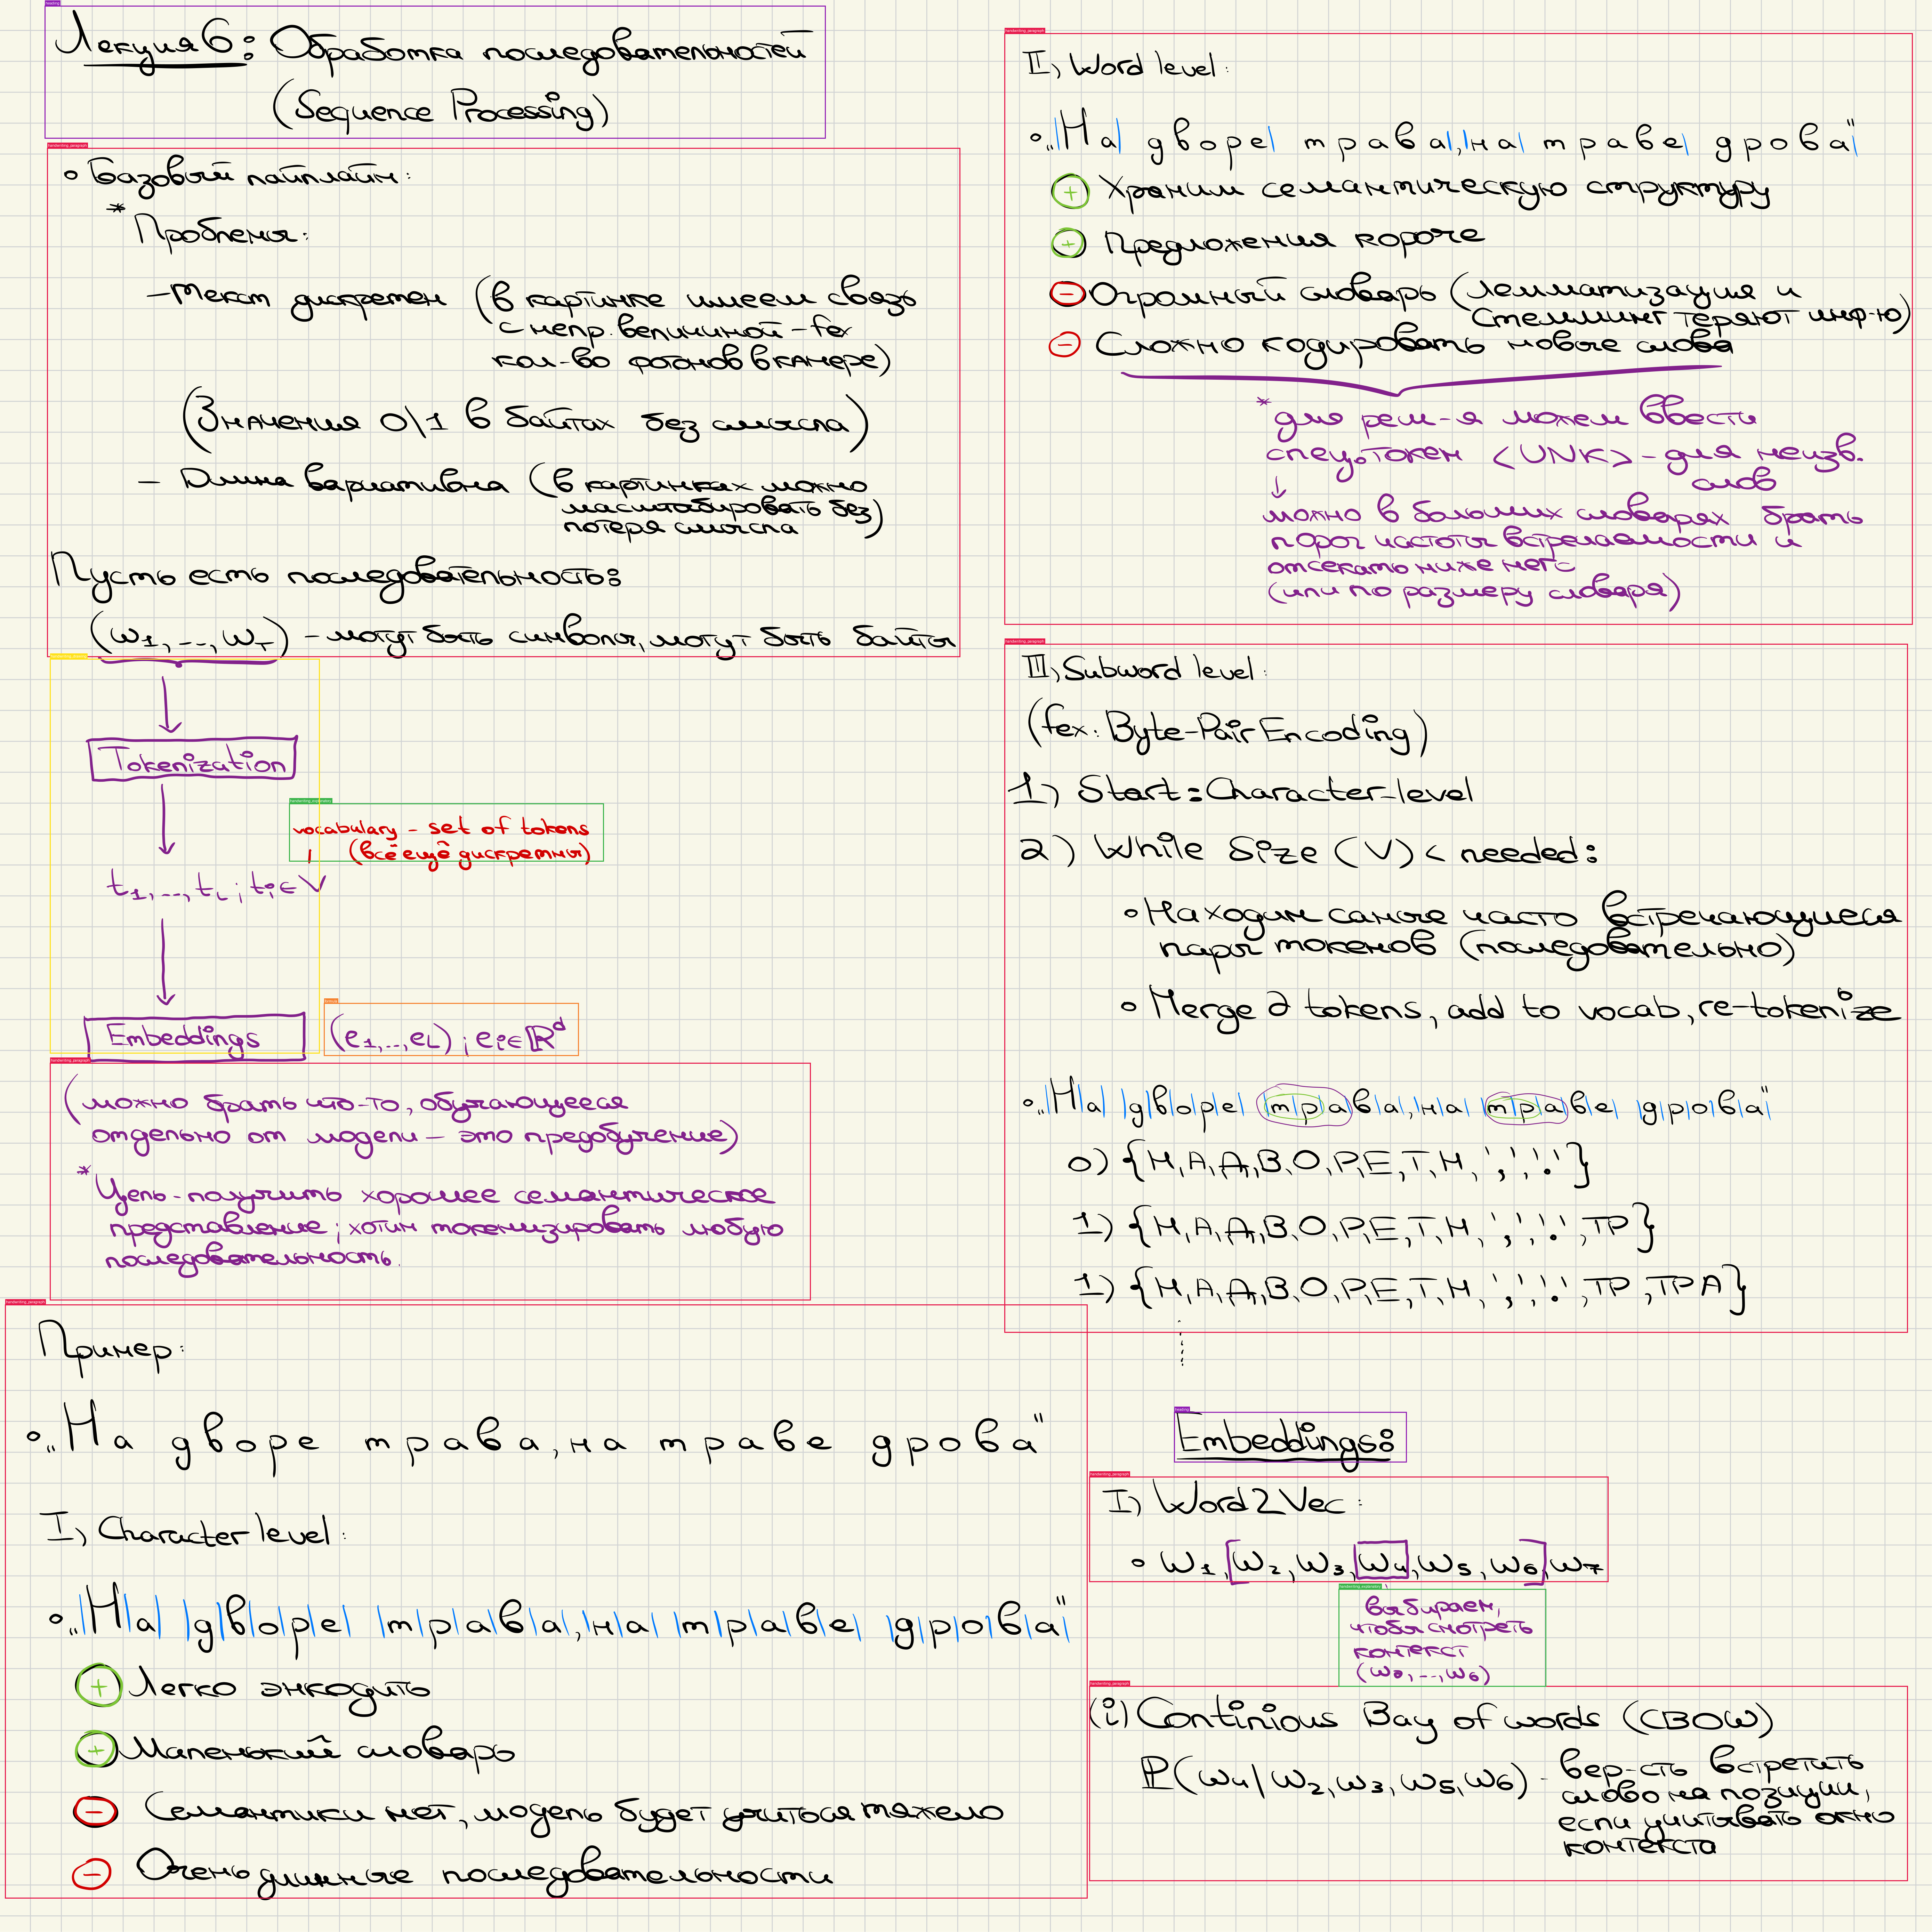 Лекция 6: Обработка последовательностей
(Sequence Processing)
∘ Базовый пайплайн:
* Проблемы:
– Текст дискретен (в картинке имеем связь
с непр. величиной – fex
кол-во фотонов в камере)
(Значения 0\1 в байтах без смысла)
– Длина вариативна (в картинках можно
масштабировать без
потеря смысла)
Пусть есть последовательность:
(ω₁, ..., ω_T) – могут быть символы, могут быть байты
Tokenization
vocabulary – set of tokens
(всё ещё дискретны)
t₁, ..., t_L ; tᵢ ∈ V
Embeddings (e₁, .., e_L) ; eᵢ ∈ ℝᵈ
(можно брать что-то, обучающееся
отдельно от модели – это предобучение)
* Цель – получить хорошее семантическое
представление; хотим токенизировать любую
последовательность.
Пример:
∘ „На дворе трава, на траве дрова"
I) Character level:
∘ „|Н|а| |д|в|о|р|е| |т|р|а|в|а|,|н|а| |т|р|а|в|е| |д|р|о|в|а|"
+ Легко энкодить
+ Маленький словарь
– Семантики нет, модель будет учиться тяжело
– Очень длинные последовательности
II) Word level:
∘ „|На| дворе| трава|,|на| траве| дрова|"
+ Храним семантическую структуру
+ Предложения короче
– Огромный словарь (лемматизация и
стемминг теряют инф-ю)
– Сложно кодировать новые слова
* для реш-я можем ввести
спец. токен <UNK> – для неизв.
слов
↓
можно в больших словарях брать
порог частоты встречаемости и
отсекать ниже него
(или по размеру словаря)
III) Subword level:
(fex: Byte-Pair Encoding)
1) Start: Character-level
2) While Size (V) < needed:
∘ Находим самые часто встречающиеся
пары токенов (последовательно)
∘ Merge 2 tokens, add to vocab, re-tokenize
∘ „|Н|а| |д|в|о|р|е| |т|р|а|в|а|,|н|а| |т|р|а|в|е| |д|р|о|в|а|"
0) {Н, А, Д, В, О, Р, Е, Т, Н, ',', '.'}
1) {Н, А, Д, В, О, Р, Е, Т, Н, ',', '.', ТР}
1) {Н, А, Д, В, О, Р, Е, Т, Н, ',', '.', ТР, ТРА}
Embeddings:
I) Word2Vec:
∘ ω₁, [ω₂, ω₃, [ω₄], ω₅, ω₆], ω₇
выбираем,
чтобы смотреть
контекст
(ω₂, ..., ω₆)
(i) Continious Bag of words (CBOW)
ℙ(ω₄ | ω₂, ω₃, ω₅, ω₆) – вер-сть встретить
слово на позиции,
если учитывать окно
контекста